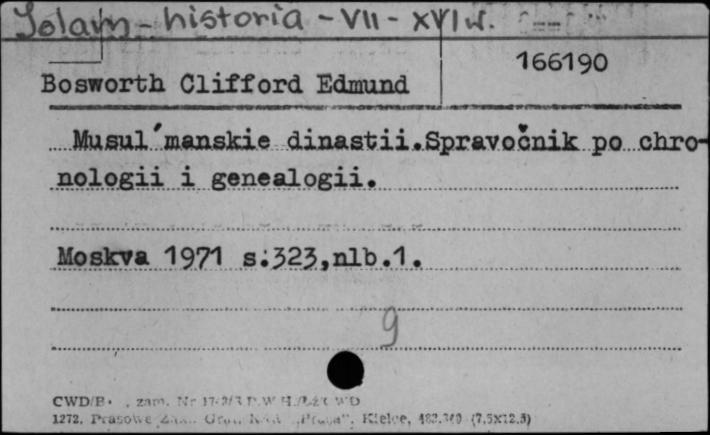 Islam - historia - VII - XVI w.
166190
Bosworth Clifford Edmund
Musul'manskie dinastii.Spravočnik po chro-
nologii i genealogii.
Moskva 1971 s.323,nlb.1.
9
CWD/B zam. Nr
1272. Prasowe Kielce, (7,5x12,5)